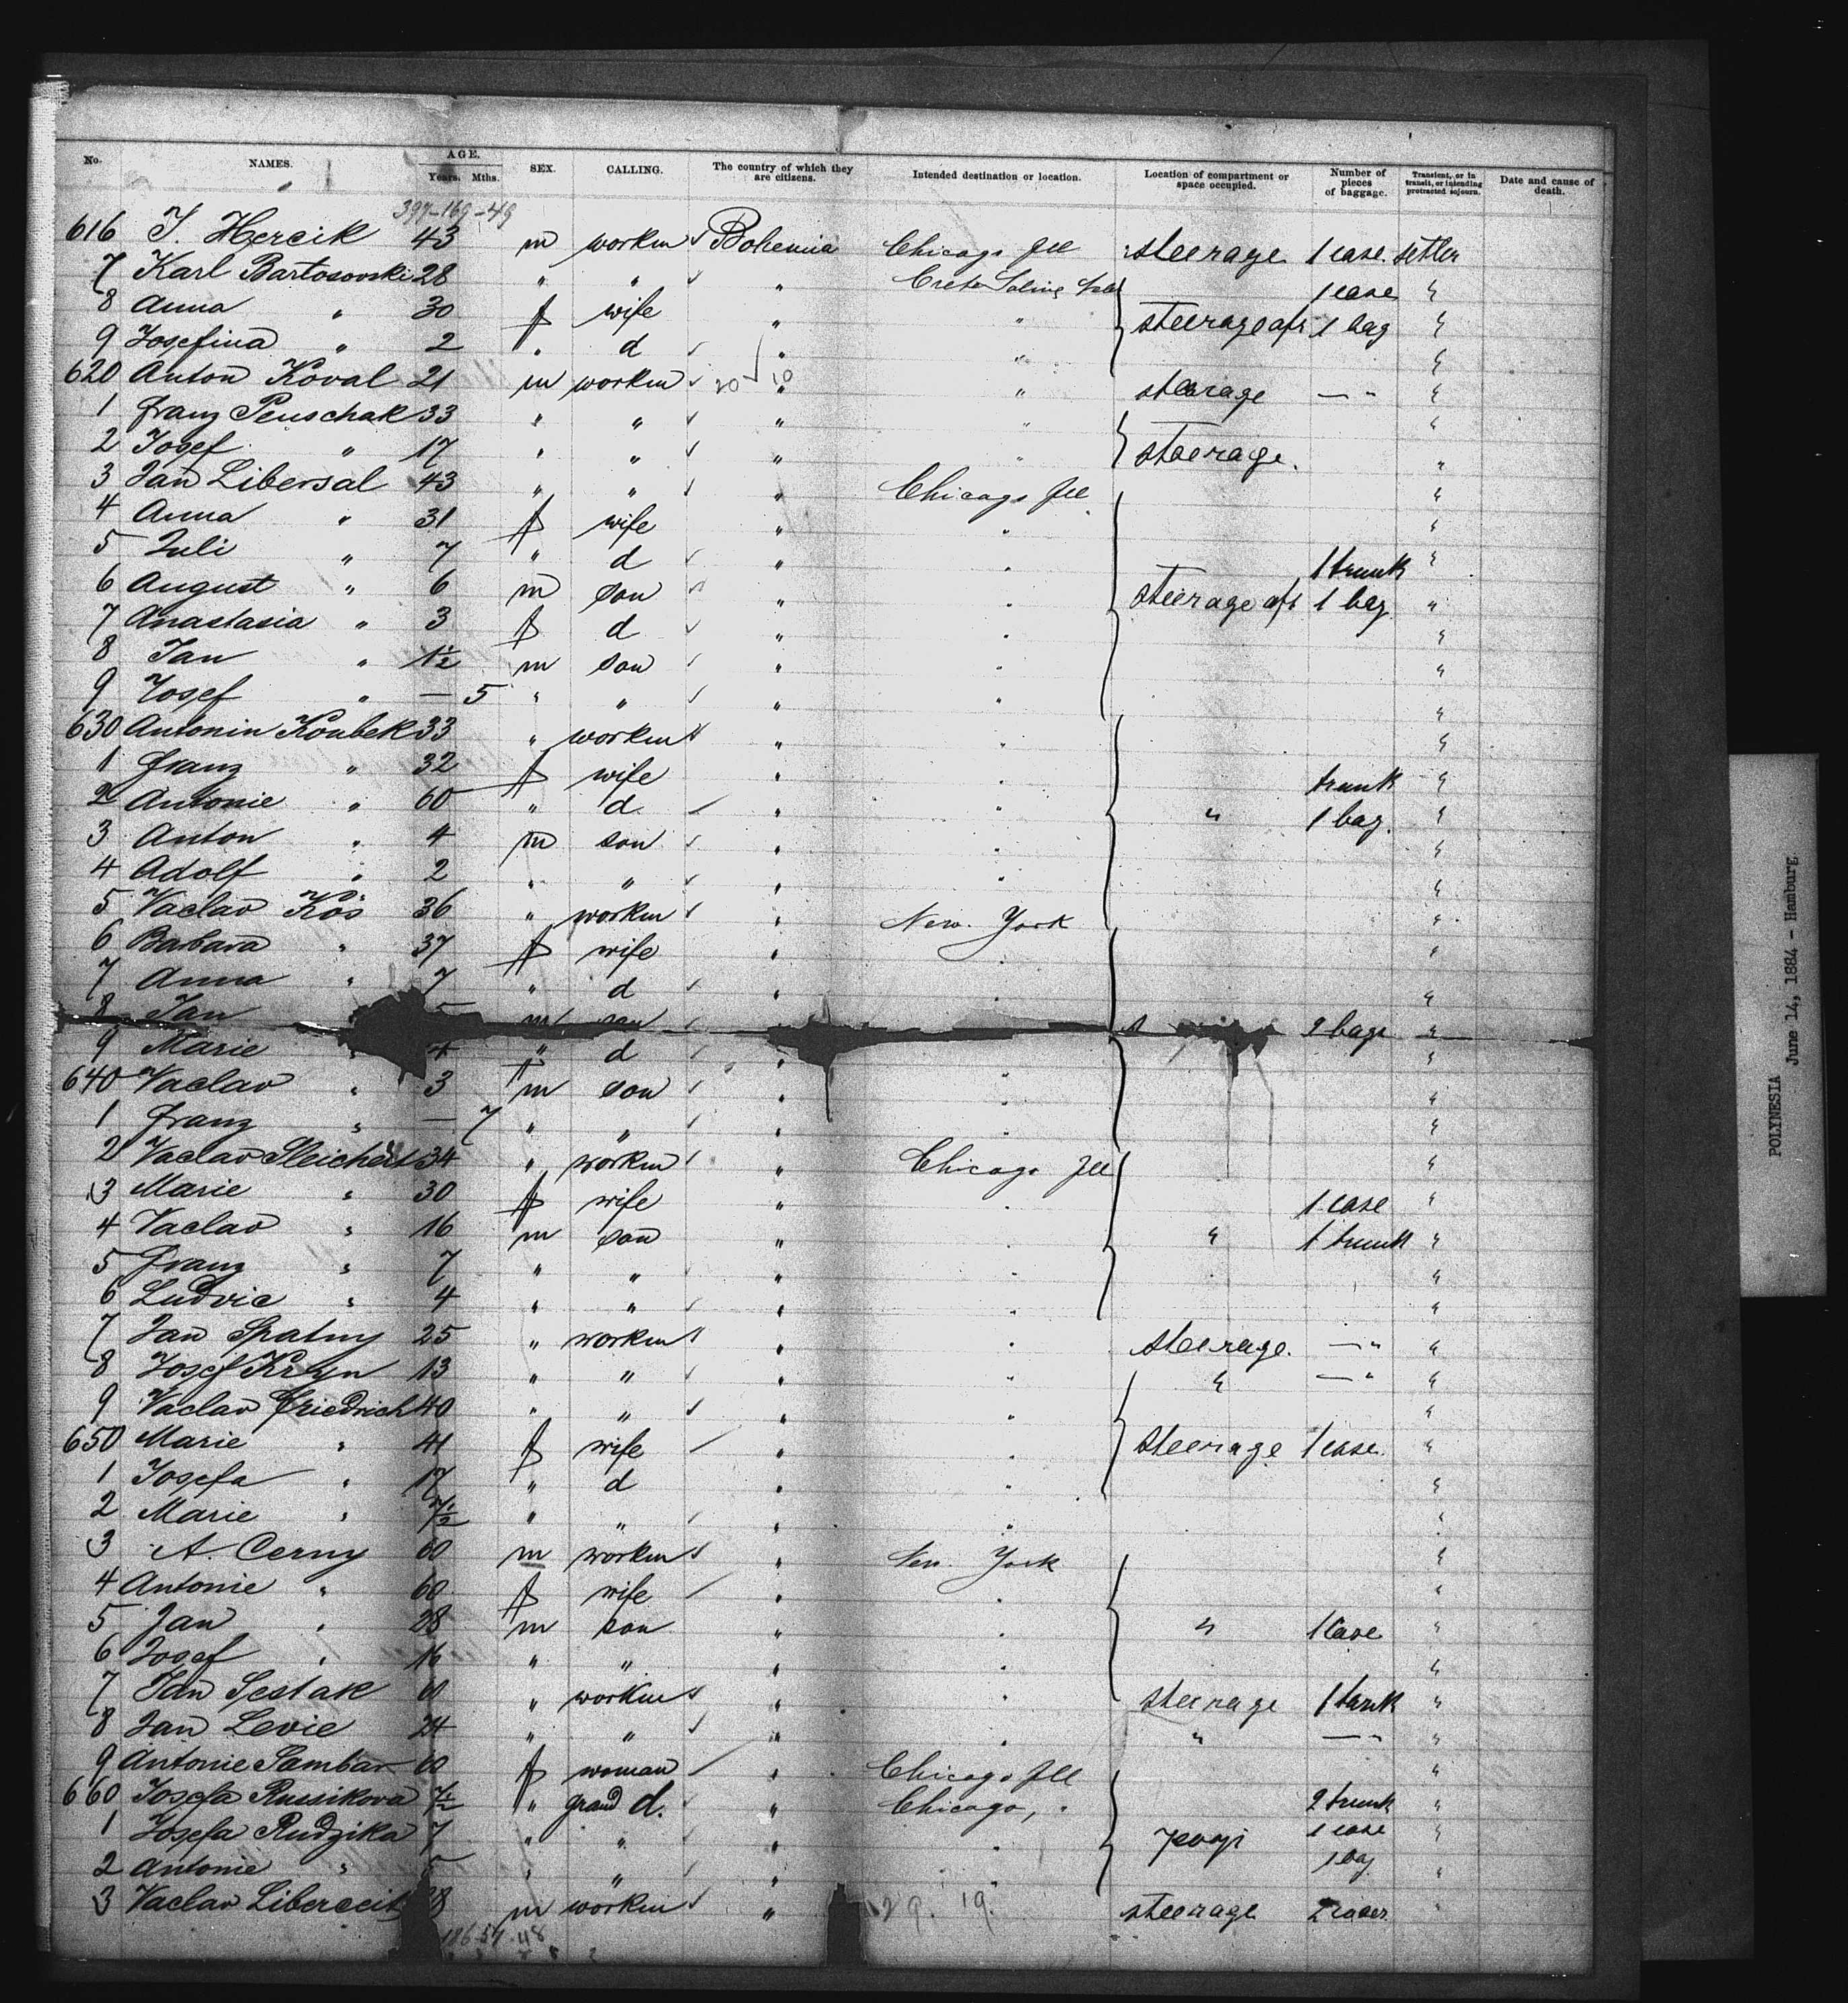 No. NAMES. AGE. Years. Mths. SEX. CALLING. The country of which they are citizens. Intended destination or location. Location of compartment or space occupied. Number of pieces of baggage. Transient, or in transit, or intending protracted sojourn. Date and cause of death.
397-169-49
616 J. Hercik 43 m workm Bohemia Chicago Ill steerage 1 case settler
7 Karl Bartosovski 28 " " " Crete Saline 1 case "
8 Anna " 30 f wife " " steerage aft 1 bag "
9 Josefina " 2 " d " " "
620 Anton Koval 21 m workm 20 10 " " steerage — " "
1 Franz Penschak 33 " " " " "
2 Josef " 17 " " " " steerage. "
3 Jan Libersal 43 " " " Chicago Ill "
4 Anna " 31 f wife " " "
5 Juli " 7 " d " " 1 trunk "
6 August " 6 m son " " steerage aft 1 bag "
7 Anastasia " 3 f d " " "
8 Jan " 1½ m son " " "
9 Josef " — 5 " " " " "
630 Antonin Koubek 33 " workm " " "
1 Franz " 32 f wife " " trunk "
2 Antonie " 60 " d. " " " 1 bag. "
3 Anton " 4 m son " " "
4 Adolf " 2 " " " " "
5 Vaclav Kos 36 " workm " New York "
6 Barbara " 37 f wife " " "
7 Anna " 7 " d " " "
8 Jan 5 m son 2 bags "
9 Marie " 4 " d " " "
640 Vaclav " 3 m son " " "
1 Franz " — 7 " " " " "
2 Vaclav Sleichert 34 " workm " Chicago Ill "
3 Marie " 30 f wife " " 1 case "
4 Vaclav " 16 m son " " " 1 trunk "
5 Franz " 7 " " " " "
6 Ludvic " 4 " " " " "
7 Jan Spatny 25 " workm " " steerage. — " "
8 Josef Kryn 13 " " " " " — " "
9 Vaclav Friedrich 40 " " " " "
650 Marie " 41 f wife " " steerage 1 case. "
1 Josefa " 17 " d " " "
2 Marie " 7½ " " " " "
3 A. Cerny 60 m workm " New York "
4 Antonie " 60 f wife " " "
5 Jan " 28 m son " " " 1 case "
6 Josef " 16 " " " " "
7 Jan Sestak 60 " workm " " steerage "
8 Jan Levie 24 " " " " " — " "
9 Antonie Sambar 60 f woman " Chicago Ill "
660 Josefa Russikova 7½ " grand d. " Chicago, " 2 trunk "
1 Josefa Rudzika 7 " " " " 1 case "
2 Antonie " 5 " " " 1 bag "
3 Vaclav Libercit 38 m workm " 29. 19. steerage 2 cases "
186-57-48
POLYNESIA
June 14, 1884 - Hamburg.